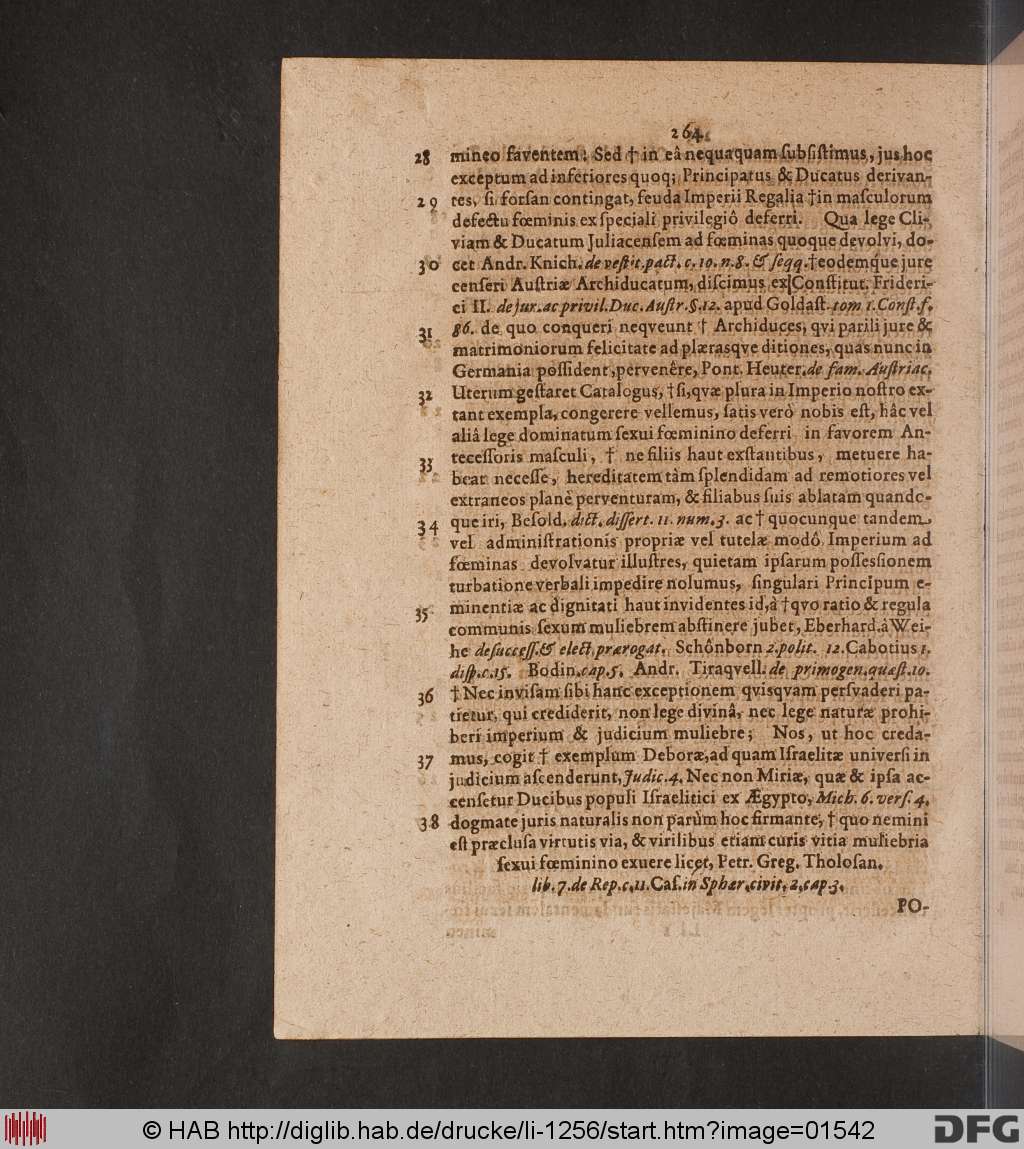 264.
28 mineo faventem: Sed † in eâ nequaquam ſubſiſtimus, jus hoc
exceptum ad inferiores quoq; Principatus & Ducatus derivan-
29 tes, ſi forſan contingat, feuda Imperii Regalia † in maſculorum
defectu fœminis ex ſpeciali privilegiô deferri. Qua lege Cli-
viam & Ducatum Juliacenſem ad fœminas quoque devolvi, do-
30 cet Andr. Knich. de veſtit. pact. c. 10. n. 8. & ſeqq. † eodemq́ue jure
cenſeri Auſtriæ Archiducatum, diſcimus ex Conſtitut. Frideri-
ci II. de jur. ac privil. Duc. Auſtr. §. 12. apud Goldaſt. tom 1. Conſt. f.
31 86. de quo conqueri neqveunt † Archiduces, qvi parili jure &
matrimoniorum felicitate ad plærasqve ditiones, quas nunc in
Germania poſſident, pervenêre, Pont. Heuter. de fam. Auſtriac.
32 Uterum geſtaret Catalogus, † ſi, qvæ plura in Imperio noſtro ex-
tant exempla, congerere vellemus, ſatis verò nobis eſt, hâc vel
aliâ lege dominatum ſexui fœminino deferri in favorem An-
33 teceſſoris maſculi, † ne filiis haut exſtantibus, metuere ha-
beat neceſſe, hereditatem tàm ſplendidam ad remotiores vel
extraneos planè perventuram, & filiabus ſuis ablatam quando-
34 que iri, Beſold. dict. diſſert. 11. num. 3. ac † quocunque tandem
vel adminiſtrationis propriæ vel tutelæ modô Imperium ad
fœminas devolvatur illuſtres, quietam ipſarum poſſeſsionem
turbatione verbali impedire nolumus, ſingulari Principum e-
35 minentiæ ac dignitati haut invidentes id, à † qvo ratio & regula
communis ſexum muliebrem abſtinere jubet, Eberhard. à Wei-
he de ſucceſſ. & elect. prærogat. Schônborn 2. polit. 12. Cabotius 1.
diſp. c. 15. Bodin. cap. 5. Andr. Tiraqvell. de primogen. quæſt. 10.
36 † Nec inviſam ſibi hanc exceptionem qvisqvam perſvaderi pa-
tietur, qui crediderit, non lege divinâ, nec lege naturæ prohi-
beri imperium & judicium muliebre; Nos, ut hoc creda-
37 mus, cogit † exemplum Deboræ, ad quam Iſraelitæ univerſi in
judicium aſcenderunt, Judic. 4. Nec non Miriæ, quæ & ipſa ac-
cenſetur Ducibus populi Iſraelitici ex Ægypto, Mich. 6. verſ. 4.
38 dogmate juris naturalis non parùm hoc firmante, † quo nemini
eſt præcluſa virtutis via, & virilibus etiam curis vitia muliebria
ſexui fœminino exuere licet, Petr. Greg. Tholoſan.
lib. 7. de Rep. c. 11. Caſ. in Sphær. civit. 2. cap. 3.
PO-
© HAB http://diglib.hab.de/drucke/li-1256/start.htm?image=01542
DFG